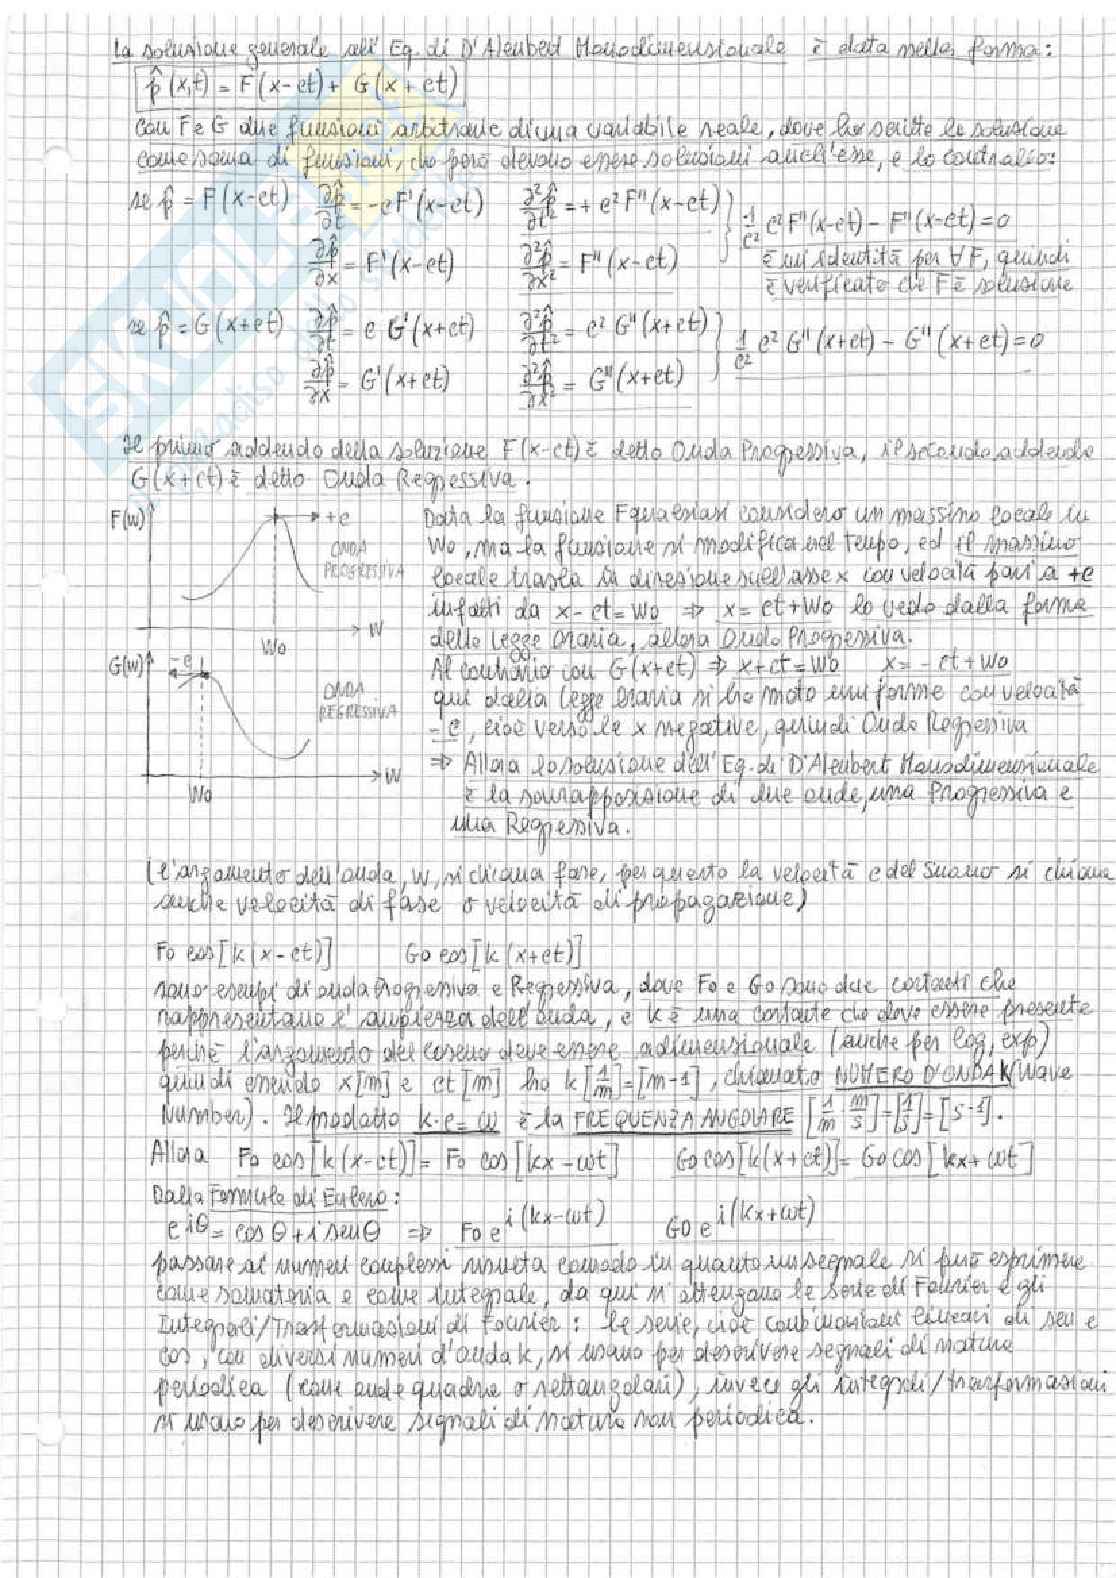 La soluzione generale dell'Eq. di D'Alembert Monodimensionale è data nella forma:
p̂(x,t) = F(x-ct) + G(x+ct)
con F e G due funzioni arbitrarie di una variabile reale, dove ho scritto la soluzione
come somma di funzioni, che però devono essere soluzioni anch'esse, e lo controllo:
se p̂ = F(x-ct) ∂p̂/∂t = -cF'(x-ct) ∂²p̂/∂t² = +c²F''(x-ct) } 1/c² c²F''(x-ct) - F''(x-ct) = 0
∂p̂/∂x = F'(x-ct) ∂²p̂/∂x² = F''(x-ct) è un'identità per ∀F, quindi
è verificato che F è soluzione
se p̂ = G(x+ct) ∂p̂/∂t = c G'(x+ct) ∂²p̂/∂t² = c² G''(x+ct) } 1/c² c² G''(x+ct) - G''(x+ct) = 0
∂p̂/∂x = G'(x+ct) ∂²p̂/∂x² = G''(x+ct)
Il primo addendo della soluzione F(x-ct) è detto Onda Progressiva, il secondo addendo
G(x+ct) è detto Onda Regressiva.
F(w) +c ONDA PROGRESSIVA w Wo
Data la funzione F qualsiasi considero un massimo locale in
Wo, ma la funzione si modifica nel tempo, ed il massimo
locale trasla in direzione sull'asse x con velocità pari a +c
infatti da x-ct = Wo ⇒ x = ct+Wo lo vedo dalla forma
della legge Oraria, allora Onda Progressiva.
G(w) -c ONDA REGRESSIVA w Wo
Al contrario con G(x+ct) ⇒ x+ct = Wo x = -ct+Wo
qui dalla legge Oraria si ha moto uniforme con velocità
-c, cioè verso le x negative, quindi Onda Regressiva
⇒ Allora la soluzione dell'Eq. di D'Alembert Monodimensionale
è la sovrapposizione di due onde, una Progressiva e
una Regressiva.
(l'argomento dell'onda, w, si chiama fase, per questo la velocità c del Suono si chiama
anche velocità di fase o velocità di propagazione)
Fo cos[k(x-ct)] Go cos[k(x+ct)]
sono esempi di onda Progressiva e Regressiva, dove Fo e Go sono due costanti che
rappresentano l'ampiezza dell'onda, e k è una costante che deve essere presente
perché l'argomento del coseno deve essere adimensionale (anche per log, exp)
quindi essendo x[m] e ct[m] ho k[1/m]=[m-1], chiamato NUMERO D'ONDA K (Wave
Number). Il prodotto k·c = ω è la FREQUENZA ANGOLARE [1/m · m/s]=[1/s]=[s-1].
Allora Fo cos[k(x-ct)] = Fo cos[kx-ωt] Go cos[k(x+ct)] = Go cos[kx+ωt]
Dalla Formula di Eulero:
e^iθ = cosθ + i senθ ⇒ Fo e^i(kx-ωt) Go e^i(kx+ωt)
passare ai numeri complessi risulta comodo in quanto un segnale si può esprimere
come somatoria e come integrale, da qui si ottengono le serie di Fourier e gli
Integrali/Trasformazioni di Fourier: le serie, cioè combinazioni lineari di sen e
cos, con diversi numeri d'onda k, si usano per descrivere segnali di natura
periodica (come onde quadre o rettangolari), invece gli integrali/trasformazioni
si usano per descrivere segnali di natura non periodica.